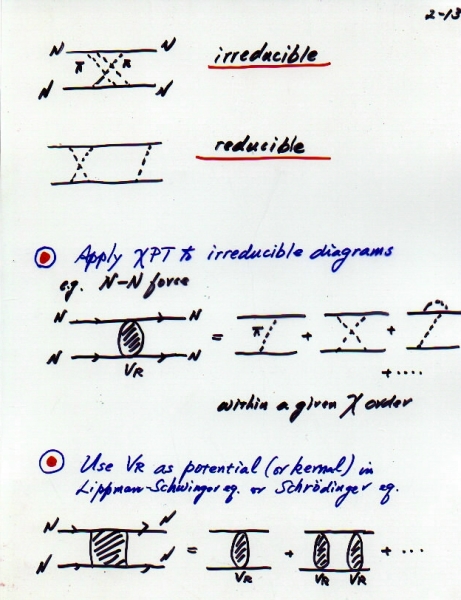 2-13
N N irreducible
π π
N N
reducible
Apply χPT to irreducible diagrams
e.g. N-N force
N N = π + +
N N
VR
+ ....
within a given χ order
Use VR as potential (or kernal) in
Lippman-Schwinger eq. or Schrödinger eq.
N N
= + + ...
N N
VR VR VR